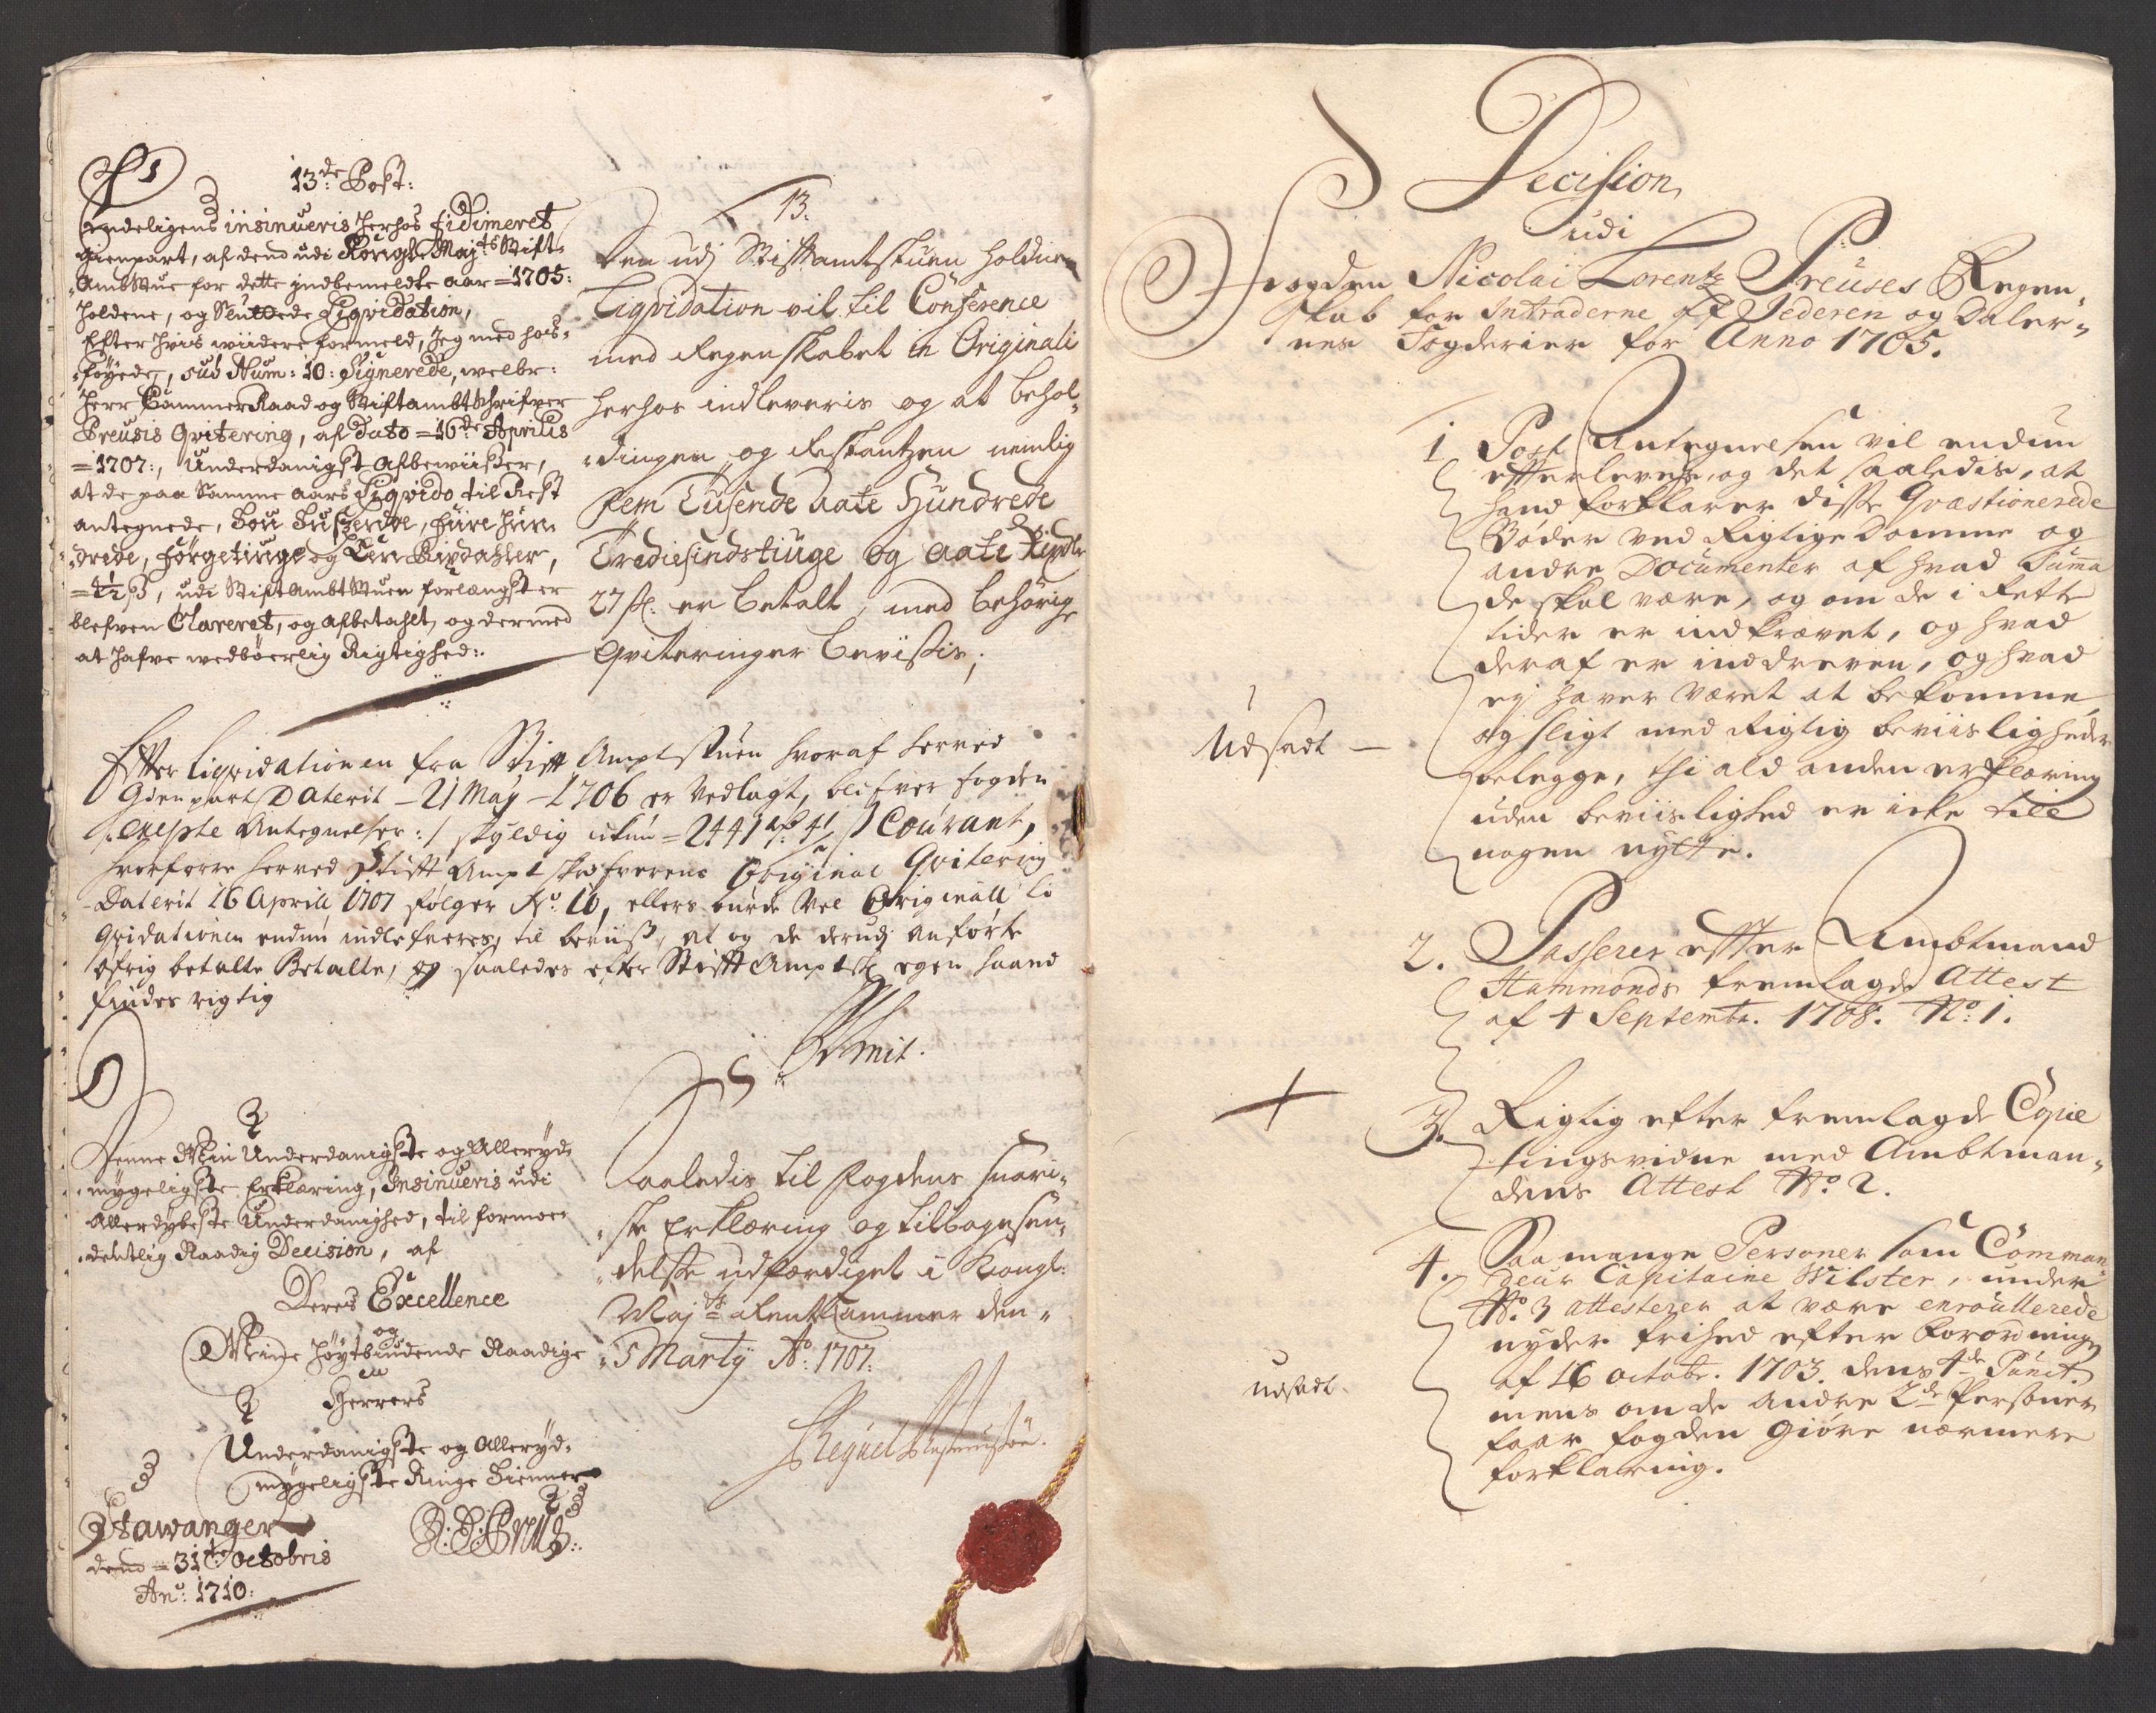 13de Post:
Endeligens insinueris herhos fidimeret
gienpart, af dend udi Kongl. Mayts Stift-
Ambtstue for dette indbemeldte aar = 1705:
holdene, og Sluttede Liqvidation,
Efter hvis wiidere formeld, Jeg med hos-
føyede, sub Num: 10: Signerede, welbr:
Herr CammerRaad og Stiftambtschrifver
Preusis Qvitering, af dato = 16de Aprilis
= 1707:, Underdanigst afbewiiser,
at de paa Samme aars Liqvido til Rest
antegnede, Tou Tusende, fiire hun-
drede, förgetiuge og Een Rixdahler,
= 4½ ß, udi StiftAmbtStuen forlængst er
blefven Clareret, og afbetahlt, og dermed
at hafve wedbøerlig Rigtighed:
13.
Den udj Stiftamtstuen holdne
Liqvidation vil til Conference
med Regenskabet in Originali
herhos indleveris og at behol-
dingen og Restantzen nemlig
fem Tusende Aatte Hundrede
Trediesindstiuge og aatte Rixdlr
27 ß. er betalt, med behørige
Qviteringer bevißis;
Efter Liqvidationen fra Stift Amptstuen hvoraf herved
Gienpart Daterit – 21 May – 1706 er vedlagt, blifver fogden
excepte Antegnelser :/ skyldig ichun = 2441 rdr 4½ ß Courant,
hvorforre herved Stift Amptskrifverens Original Qvitering
Daterit 16 Aprill 1707 følger No: 10, ellers burde vel Originall Li
qvidationen endnu indlefveres, til beviiß, at og de derudj anførte
øfrig betalte Betalte, og saaledes efter Stift Amptsk. egen haand
findes rigtig
Denne Min Underdanigste og Alleryd-
mygeligste Erklæring, Insinueris udi
Allerdybeste Underdanighed, til formoe-
dentlig Naadig Decision, af
Deres Excellence
og
Mine høytbiudende Naadige
Herrers
Underdanigste og Alleryd-
mygeligste Ringe Tienner
Stawanger
dend = 31te Octobris
Ano: 1710:
Saaledis til fogdens suari-
ste Erklæring og tilbagesen-
delße udfærdiget i Kongl:
Mayts RenteCammer den
5 Martij Ao: 1707:
Decision
udi
Fogden Nicolai Lorentz Preuses Regen-
skab for Intraderne af Jederen og Daler-
nes Fogderier for Anno 1705.
1 Post Antegnelsen vil endnu
efterleves, og det saaledis, at
hand forklarer disse Qvæstionerede
Bøder ved Rigtige Domme og
andre Documenter af hvad Summa
de skal være, og om de i rette
tider er indkrævet, og hvad
deraf er inddreven, og hvad
ej haver været at bekomme,
og sligt med Rigtig beviisligheder
belegge, thi ald anden erklæring
uden beviislighed er icke till
nogen nytte.
Udsadt –
2. Passerer efter Ambtmand
Hammonds fremlagde Attest
af 4 Septembr. 1708. No: 1.
3. Rigtig efter fremlagde Copie
tingsvidne med Ambtman-
dens Attest No. 2.
4. Saa mange Personer som Comman-
deur Capitaine Wilster, under
No. 3 attesterer at være enroullerede
nyder frihed efter Forordningen
af 16 octobr. 1703. dens 4de Punct.
mens om de andre 2de Personer
faar fogden giøre nærmere
forklaring.
udsadt.